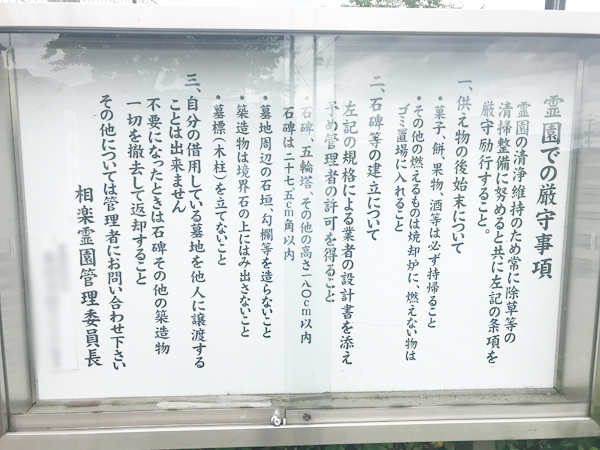 霊園での厳守事項
霊園の清浄維持のため常に除草等の
清掃整備に努めると共に左記の条項を
厳守励行すること。
一、供え物の後始末について
・菓子、餅、果物、酒等は必ず持帰ること
・その他の燃えるものは焼却炉に、燃えない物は
ゴミ置場に入れること
二、石碑等の建立について
左記の規格による業者の設計書を添え
予め管理者の許可を得ること
・石碑、五輪塔、その他の高さ一八〇cm以内
石碑は二十七・五cm角以内
・墓地周辺の石垣、勾欄等を造らないこと
・築造物は境界石の上にはみ出さないこと
・墓標（木柱）を立てないこと
三、自分の借用している墓地を他人に譲渡する
ことは出来ません
不要になったときは石碑その他の築造物
一切を撤去して返却すること
その他については管理者にお問い合わせ下さい
相楽霊園管理委員長